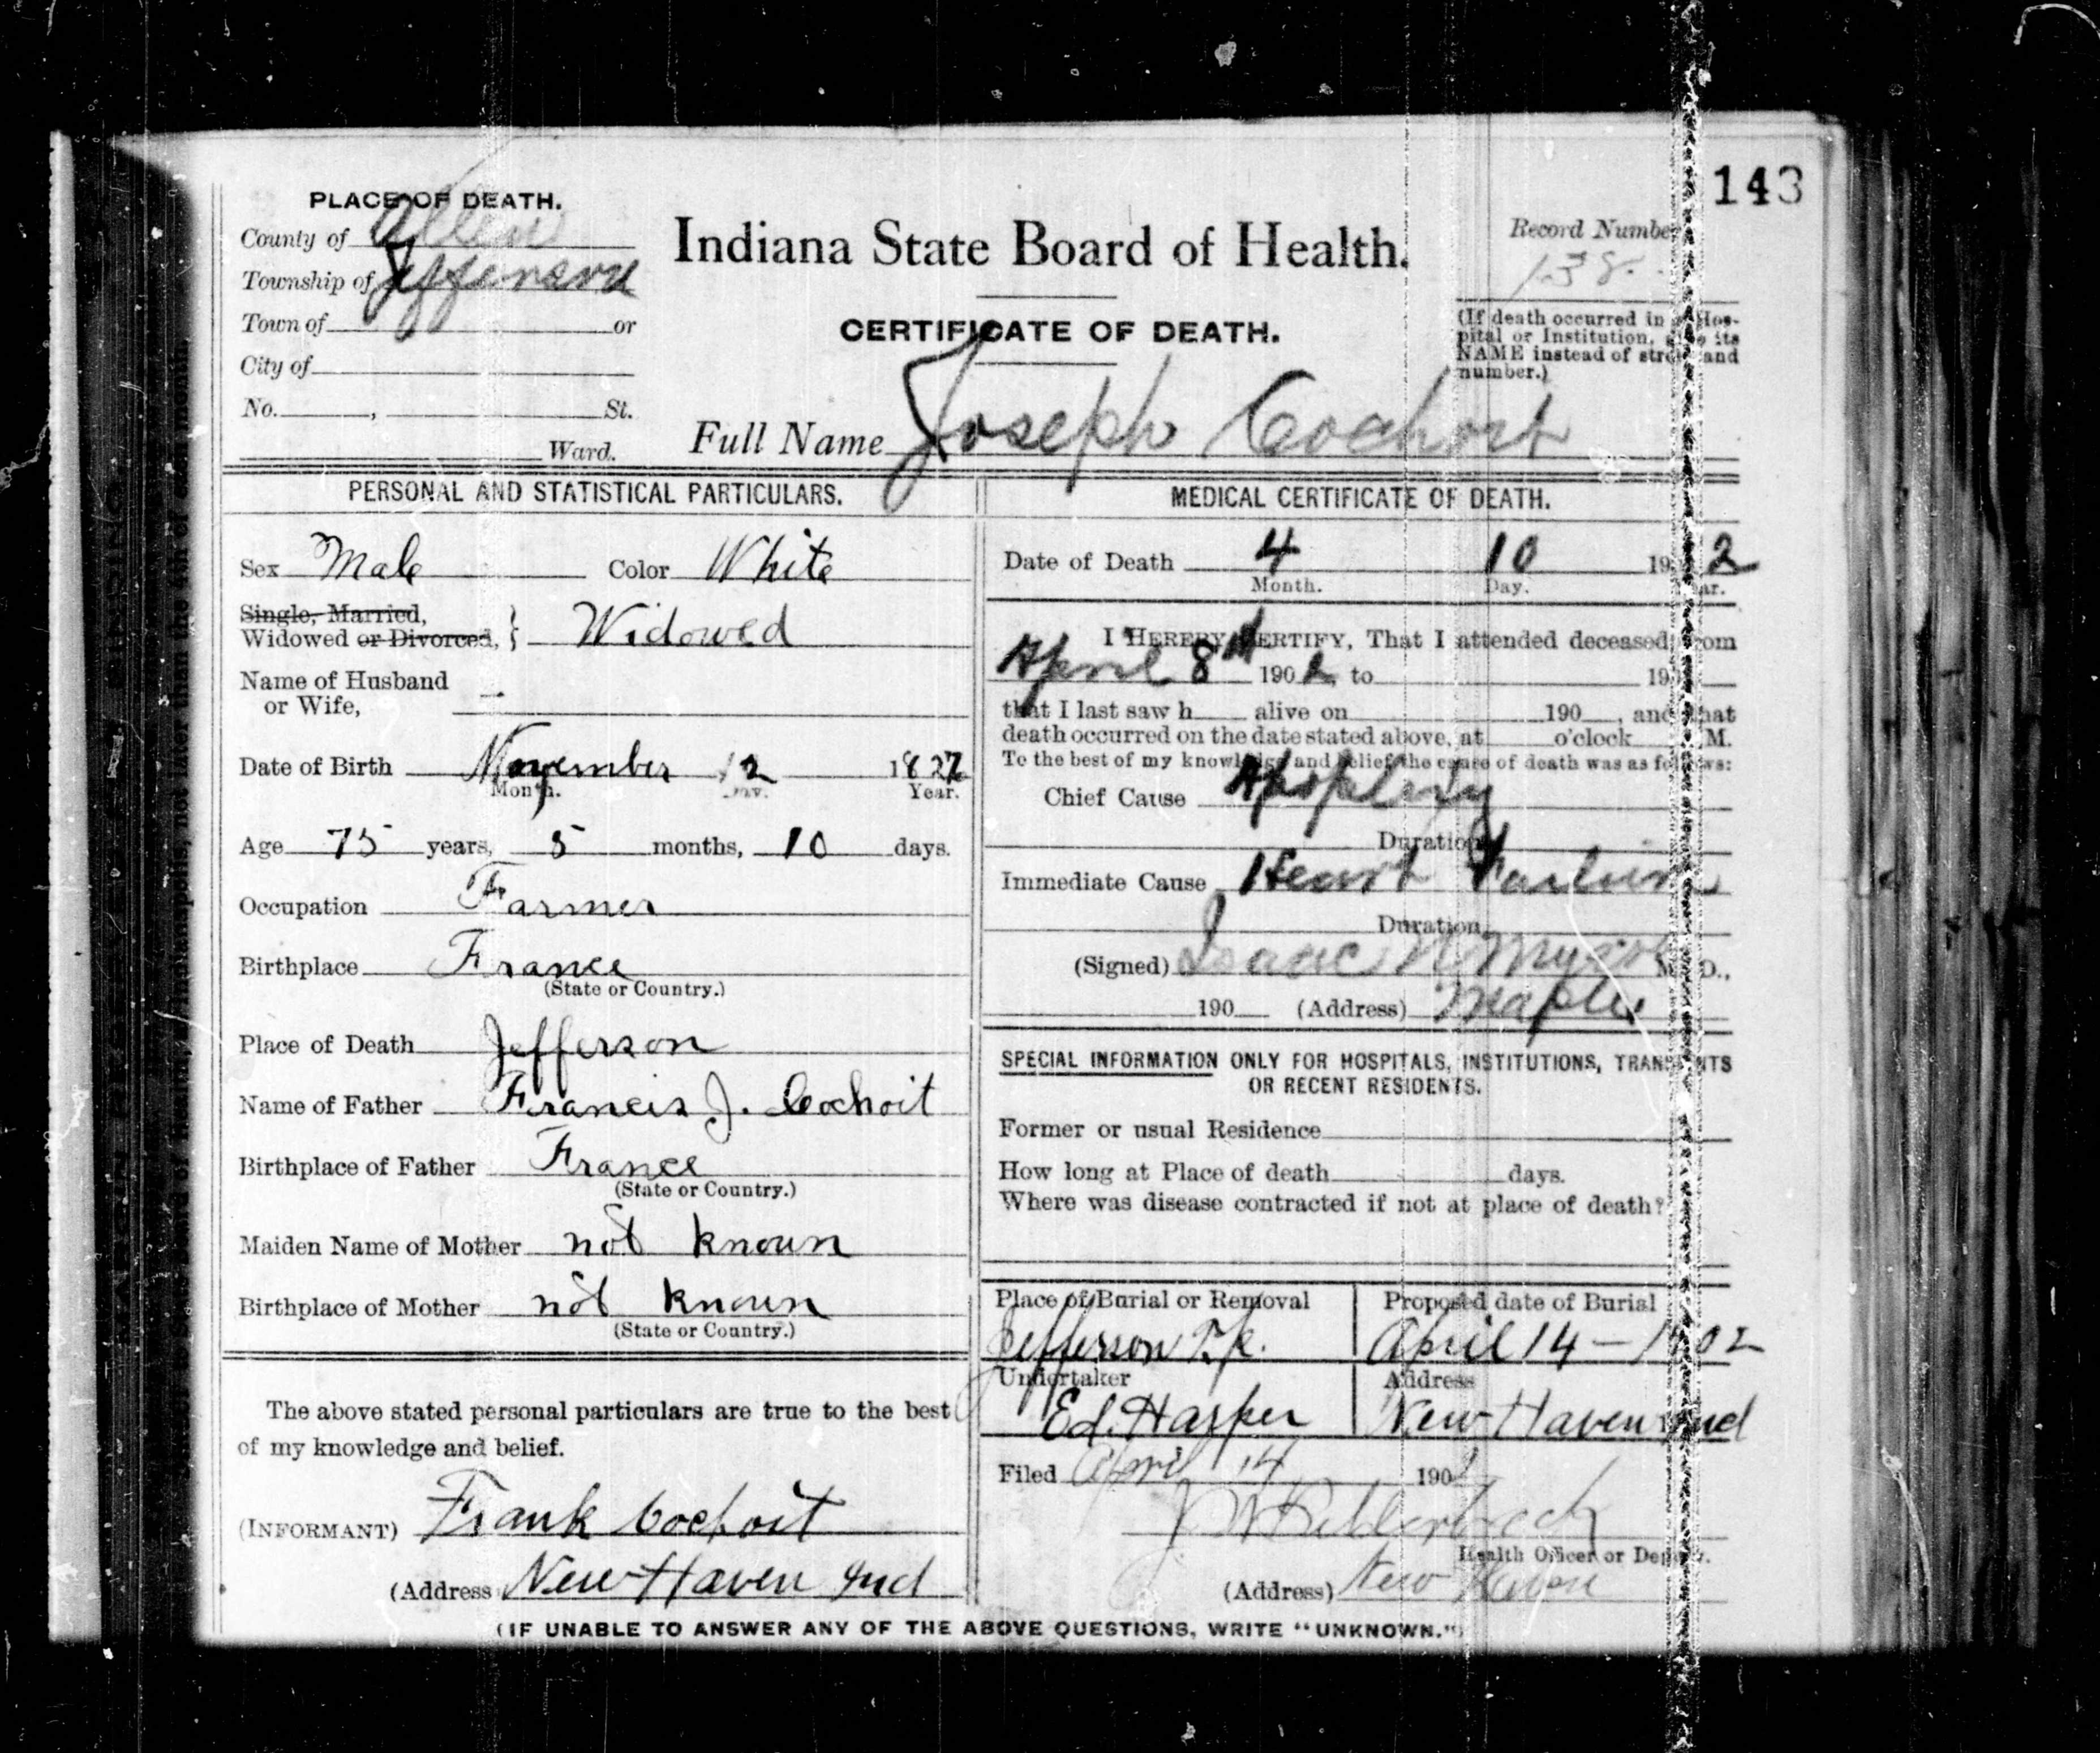 143
PLACE OF DEATH.
County of Allen
Township of Jefferson
Town of or
City of
No. , St.
Ward.
Indiana State Board of Health.
CERTIFICATE OF DEATH.
Record Number
138.
(If death occurred in a Hos-
pital or Institution, give its
NAME instead of street and
number.)
Full Name Joseph Cochoit
PERSONAL AND STATISTICAL PARTICULARS.
Sex Male Color White
Single, Married,
Widowed or Divorced, } Widowed
Name of Husband
or Wife,
Date of Birth November 12 1827
Month. Day. Year.
Age 75 years, 5 months, 10 days.
Occupation Farmer
Birthplace France
(State or Country.)
Place of Death Jefferson
Name of Father Francis J. Cochoit
Birthplace of Father France
(State or Country.)
Maiden Name of Mother not known
Birthplace of Mother not known
(State or Country.)
The above stated personal particulars are true to the best
of my knowledge and belief.
(INFORMANT) Frank Cochoit
(Address New Haven Ind
MEDICAL CERTIFICATE OF DEATH.
Date of Death 4 10 1902
Month. Day. Year.
I HEREBY CERTIFY, That I attended deceased from
April 8th 1902, to 190
that I last saw h alive on 190 , and that
death occurred on the date stated above, at o'clock M.
To the best of my knowledge and belief the cause of death was as follows:
Chief Cause Apoplexy
Duration
Immediate Cause Heart Failure
Duration
(Signed) Isaac N Myers M. D.,
190 (Address) Maples
SPECIAL INFORMATION ONLY FOR HOSPITALS, INSTITUTIONS, TRANSIENTS
OR RECENT RESIDENTS.
Former or usual Residence
How long at Place of death days.
Where was disease contracted if not at place of death?
Place of Burial or Removal Proposed date of Burial
Jefferson T.p. April 14 - 1902
Undertaker Address
Ed. Harper New Haven Ind
Filed April 14 1902
Health Officer or Deputy.
(Address) New Haven
(IF UNABLE TO ANSWER ANY OF THE ABOVE QUESTIONS, WRITE "UNKNOWN.")